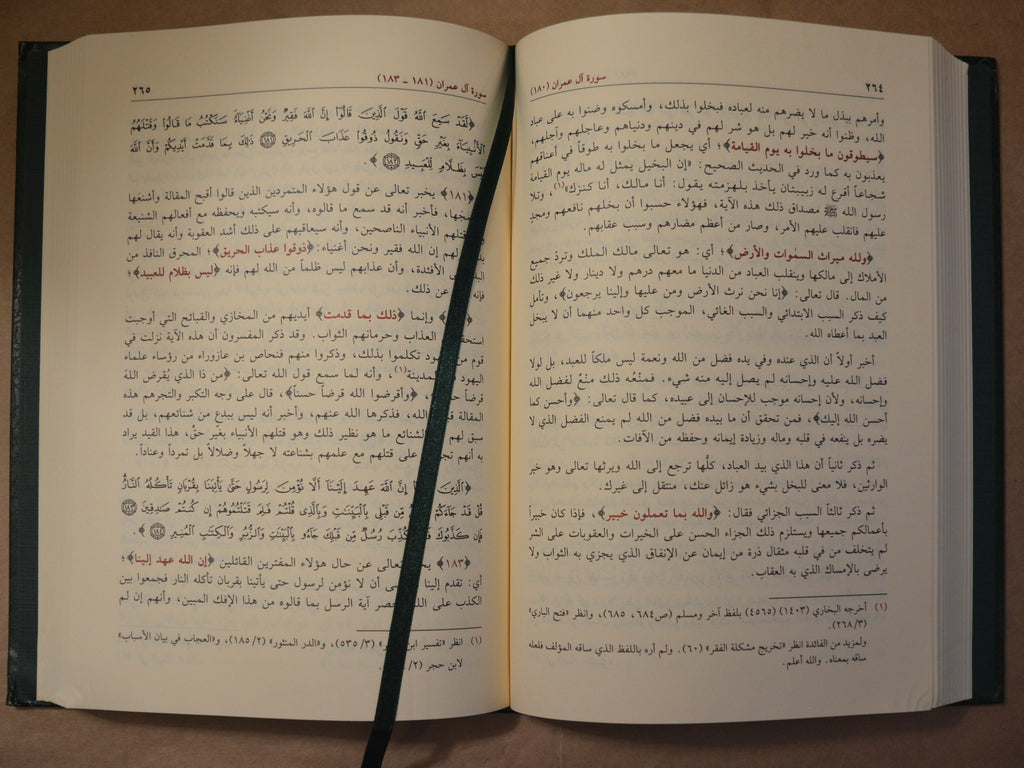 ٢٦٤
سورة آل عمران (١٨٠)
وأمرهم ببذل ما لا يضرهم منه لعباده فبخلوا بذلك، وأمسكوه وضنوا به على عباد
الله، وظنوا أنه خير لهم بل هو شر لهم في دينهم ودنياهم وعاجلهم وآجلهم،
﴿سيطوقون ما بخلوا به يوم القيامة﴾؛ أي يجعل ما بخلوا به طوقاً في أعناقهم
يعذبون به كما ورد في الحديث الصحيح: «إن البخيل يمثل له ماله يوم القيامة
شجاعاً أقرع له زبيبتان يأخذ بلهزمته يقول: أنا مالك، أنا كنزك»(١)، وتلا
رسول الله ﷺ مصداق ذلك هذه الآية، فهؤلاء حسبوا أن بخلهم نافعهم ومجدٍ
عليهم فانقلب عليهم الأمر، وصار من أعظم مضارهم وسبب عقابهم.
﴿ولله ميراث السموات والأرض﴾؛ أي: هو تعالى مالك الملك وتردّ جميع
الأملاك إلى مالكها وينقلب العباد من الدنيا ما معهم درهم ولا دينار ولا غير ذلك
من المال. قال تعالى: ﴿إنا نحن نرث الأرض ومن عليها وإلينا يرجعون﴾، وتأمل
كيف ذكر السبب الابتدائي والسبب الغائي، الموجب كل واحد منهما أن لا يبخل
العبد بما أعطاه الله.
أخبر أولاً أن الذي عنده وفي يده فضل من الله ونعمة ليس ملكاً للعبد، بل لولا
فضل الله عليه وإحسانه لم يصل إليه منه شيء. فمنْعُه ذلك منْعٌ لفضل الله
وإحسانه، ولأن إحسانه موجب للإحسان إلى عبيده، كما قال تعالى: ﴿وأحسن كما
أحسن الله إليك﴾، فمن تحقق أن ما بيده فضل من الله لم يمنع الفضل الذي لا
يضره بل ينفعه في قلبه وماله وزيادة إيمانه وحفظه من الآفات.
ثم ذكر ثانياً أن هذا الذي بيد العباد، كلُّها ترجع إلى الله ويرثها تعالى وهو خير
الوارثين، فلا معنى للبخل بشيء هو زائل عنك، منتقل إلى غيرك.
ثم ذكر ثالثاً السبب الجزائي فقال: ﴿والله بما تعملون خبير﴾، فإذا كان خبيراً
بأعمالكم جميعها ويستلزم ذلك الجزاء الحسن على الخيرات والعقوبات على الشر
لم يتخلف من في قلبه مثقال ذرة من إيمان عن الإنفاق الذي يجزي به الثواب ولا
يرضى بالإمساك الذي به العقاب.
(١) أخرجه البخاري (١٤٠٣) (٤٥٦٥) بلفظ آخر ومسلم (ص٦٨٤، ٦٨٥)، وانظر «فتح الباري»
(٢٦٨/٣).
ولمزيد من الفائدة انظر «تخريج مشكلة الفقر» (٦٠). ولم أره باللفظ الذي ساقه المؤلف فلعله
ساقه بمعناه. والله أعلم.
سورة آل عمران (١٨١ - ١٨٣)
٢٦٥
﴿لَّقَدْ سَمِعَ اللَّهُ قَوْلَ الَّذِينَ قَالُوا إِنَّ اللَّهَ فَقِيرٌ وَنَحْنُ أَغْنِيَاءُ سَنَكْتُبُ مَا قَالُوا وَقَتْلَهُمُ
الْأَنْبِيَاءَ بِغَيْرِ حَقٍّ وَنَقُولُ ذُوقُوا عَذَابَ الْحَرِيقِ ﴿١٨١﴾ ذَٰلِكَ بِمَا قَدَّمَتْ أَيْدِيكُمْ وَأَنَّ اللَّهَ
لَيْسَ بِظَلَّامٍ لِّلْعَبِيدِ ﴿١٨٢﴾﴾.
﴿١٨١﴾ يخبر تعالى عن قول هؤلاء المتمردين الذين قالوا أقبح المقالة وأشنعها
وأسمجها، فأخبر أنه قد سمع ما قالوه، وأنه سيكتبه ويحفظه مع أفعالهم الشنيعة
قتلهم الأنبياء الناصحين، وأنه سيعاقبهم على ذلك أشد العقوبة وأنه يقال لهم
لهم إن الله فقير ونحن أغنياء: ﴿ذوقوا عذاب الحريق﴾؛ المحرق النافذ من
الأفئدة، وأن عذابهم ليس ظلماً من الله لهم فإنه ﴿ليس بظلام للعبيد﴾؛
فإنه عن ذلك.
وإنما ﴿ذلك بما قدمت﴾ أيديهم من المخازي والقبائح التي أوجبت
العذاب وحرمانهم الثواب. وقد ذكر المفسرون أن هذه الآية نزلت في
قوم من تكلموا بذلك، وذكروا منهم فنحاص بن عازوراء من رؤساء علماء
اليهود المدينة(١)، وأنه لما سمع قول الله تعالى: ﴿من ذا الذي يُقرض الله
قرضاً ﴿وأقرضوا الله قرضاً حسناً﴾، قال على وجه التكبر والتجرهم هذه
المقالة الله، فذكرها الله عنهم، وأخبر أنه ليس ببدع من شنائعهم، بل قد
سبق لهم الشنائع ما هو نظير ذلك وهو قتلهم الأنبياء بغير حقٍّ، هذا القيد يراد
به أنهم على قتلهم مع علمهم بشناعته لا جهلاً وضلالاً بل تمرداً وعناداً.
﴿الَّذِينَ إِنَّ اللَّهَ عَهِدَ إِلَيْنَا أَلَّا نُؤْمِنَ لِرَسُولٍ حَتَّىٰ يَأْتِيَنَا بِقُرْبَانٍ تَأْكُلُهُ النَّارُ
قُلْ قَدْ جَاءَكُمْ مِّن قَبْلِي بِالْبَيِّنَاتِ وَبِالَّذِي قُلْتُمْ فَلِمَ قَتَلْتُمُوهُمْ إِن كُنتُمْ صَادِقِينَ ﴿١٨٣﴾
فَإِن كَذَّبُوكَ كُذِّبَ رُسُلٌ مِّن قَبْلِكَ جَاءُو بِالْبَيِّنَاتِ وَالزُّبُرِ وَالْكِتَابِ الْمُنِيرِ ﴿١٨٤﴾﴾.
﴿١٨٣﴾ تعالى عن حال هؤلاء المفترين القائلين ﴿إن الله عهد إلينا﴾؛
أي: تقدم إلينا أن لا نؤمن لرسول حتى يأتينا بقربان تأكله النار فجمعوا بين
الكذب على الله آية الرسل بما قالوه من هذا الإفك المبين، وأنهم إن لم
(١) انظر «تفسير ابن (٣/ ٥٣٥)، و«الدر المنثور» (٢/ ١٨٥)، و«العجاب في بيان الأسباب»
لابن حجر (٢/